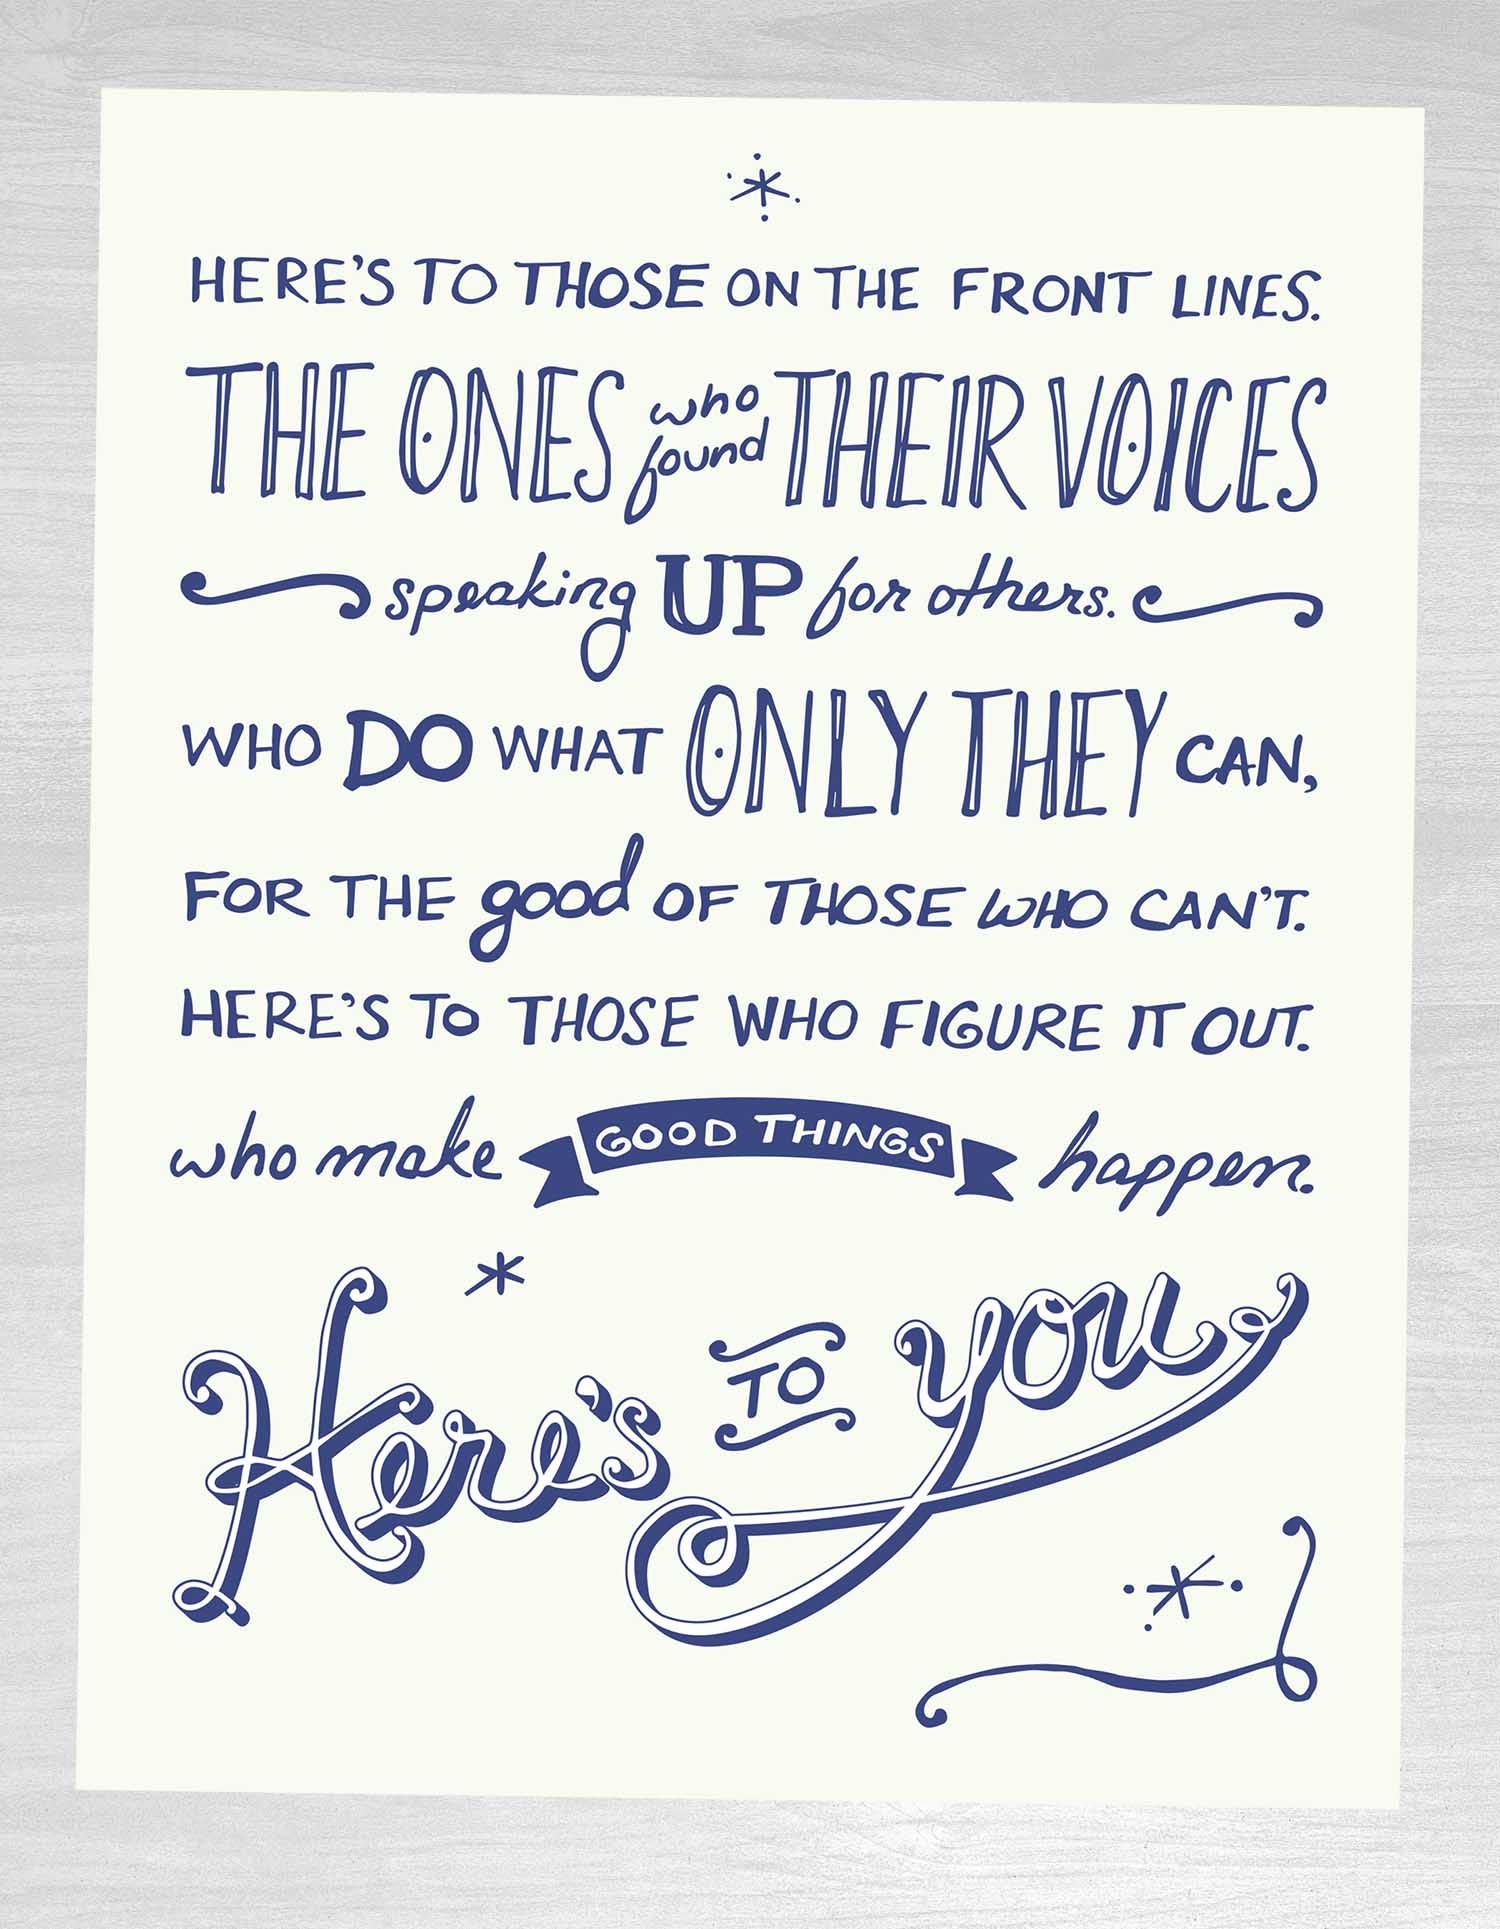 HERE'S TO THOSE ON THE FRONT LINES.
THE ONES who found THEIR VOICES
speaking UP for others.
WHO DO WHAT ONLY THEY CAN,
FOR THE good OF THOSE WHO CAN'T.
HERE'S TO THOSE WHO FIGURE IT OUT.
who make GOOD THINGS happen.
Here's TO you